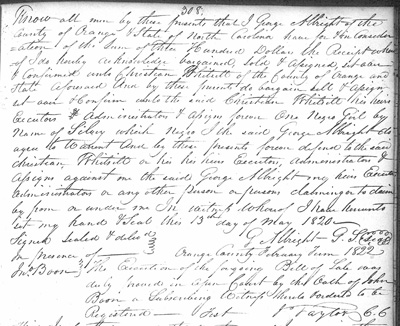 308
Know all men by these presents that I George Albright of the
County of Orange & State of North Carolina have for & in Consider
=ation of the Sum of Hundred Dollars the Receipt whereof
I do hereby acknowledge bargained, sold & assigned, set over
& Confirmed unto Christian Whitsitt of the County of Orange and
State aforesaid And by these presents do bargain sell & assign,
set over & Confirm unto the said Christian Whitsitt his heirs
Executors Administrators & assigns forever One Negro Girl by
Name of which Negro I the said George Albright do
agree to Warrant And by these presents forever defend to the said
Christian Whitsitt or his heirs Executors, administrators &
Assigns against me the said George Albright my heirs Executors
administrators or any other person or persons claiming or to claim
by from or under me In witness whereof I have hereunto
set my hand & Seal this 13th day of May 1820
Signed sealed & delivd G Albright Seal
in presence of Orange County February Term 1822
Jno. Boon The Execution of the foregoing Bill of Sale was
duly proved in Open Court by the Oath of John
Boon a Subscribing Witness thereto & ordered to be
Registered — Test J Taylor